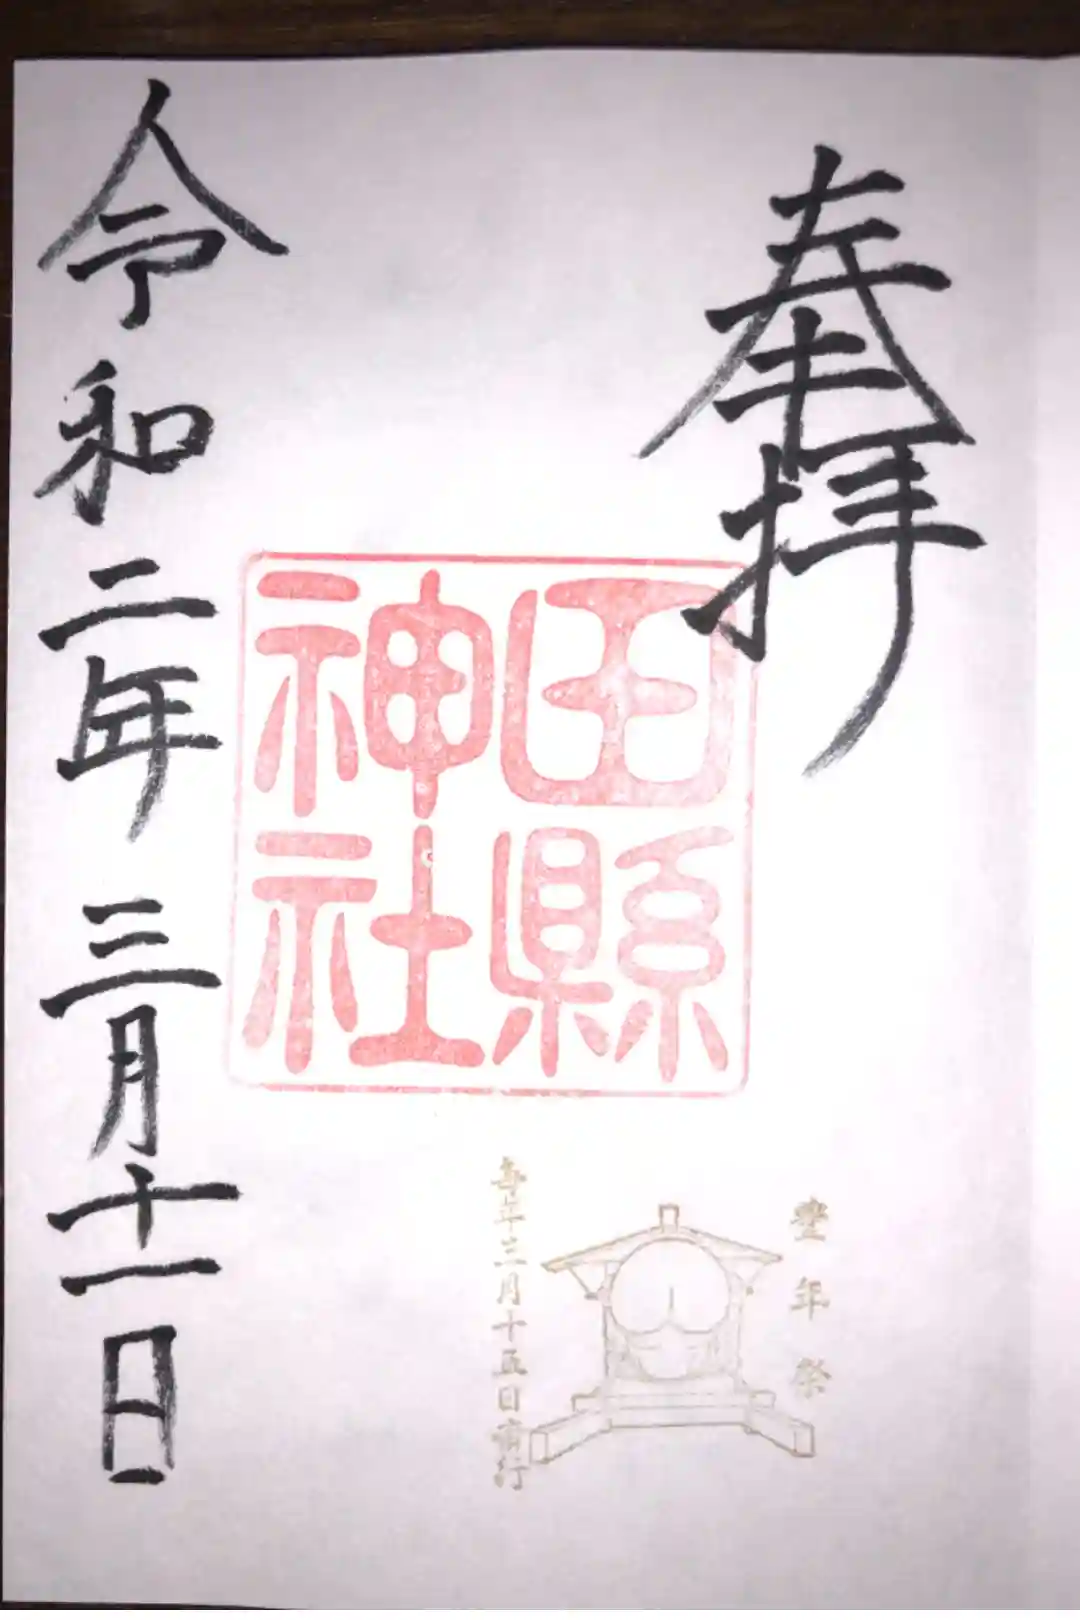 奉拝
田縣
神社
豊年祭
毎年三月十五日斎行
令和二年三月十一日